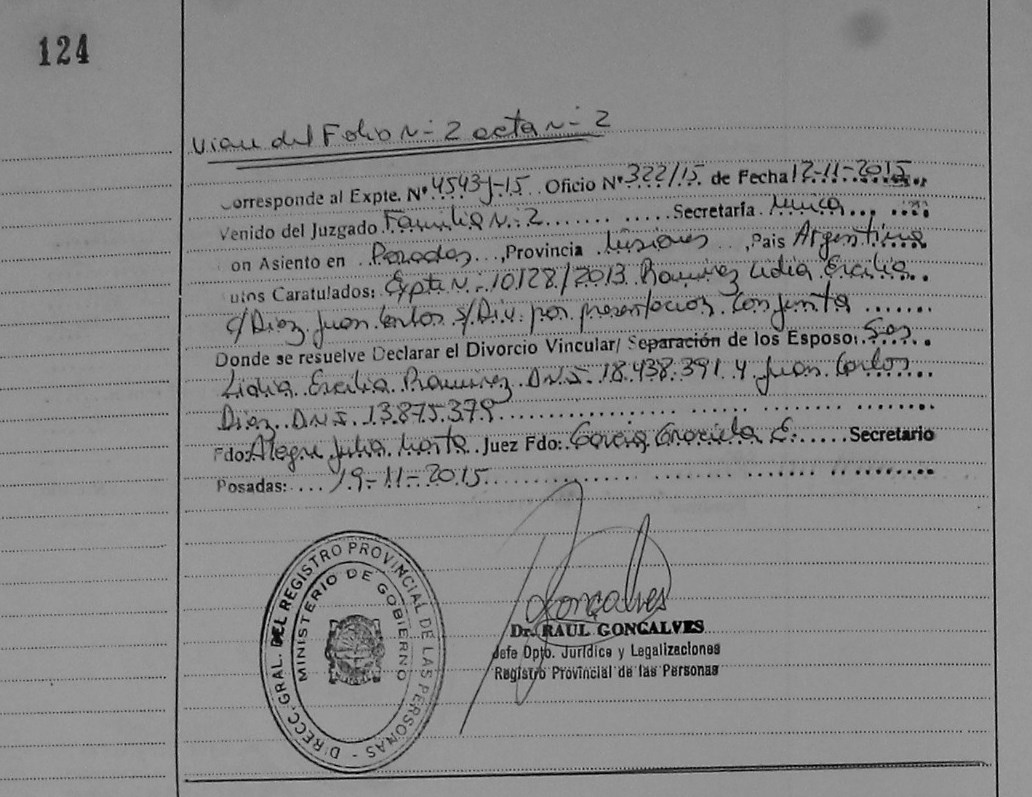 124
Viene del Folio N- 2 acta N- 2
Corresponde al Expte. Nº 4543-J-15 Oficio Nº 322/15 de Fecha 12-11-2015
Venido del Juzgado Familia N- 2 Secretaría Unica
on Asiento en Posadas, Provincia Misiones, Pais Argentina
utos Caratulados: Expte N- 10128/2013 Ramirez Lidia Ercilia
c/ Diaz Juan Carlos s/Div. por presentacion Conjunta
Donde se resuelve Declarar el Divorcio Vincular/ Separación de los Esposo: Sres
Lidia Ercilia Ramirez DNI. 18.438.391 y Juan Carlos
Diaz DNI. 13.875.379
Fdo: Alegre Julia Marta Juez Fdo: Garcia Graciela E. Secretario
Posadas: 19-11-2015
DIRECC. GRAL. DEL REGISTRO PROVINCIAL DE LAS PERSONAS -
MINISTERIO DE GOBIERNO
Goncalves
Dr. RAUL GONCALVES
Jefe Dpto. Jurídico y Legalizaciones
Registro Provincial de las Personas